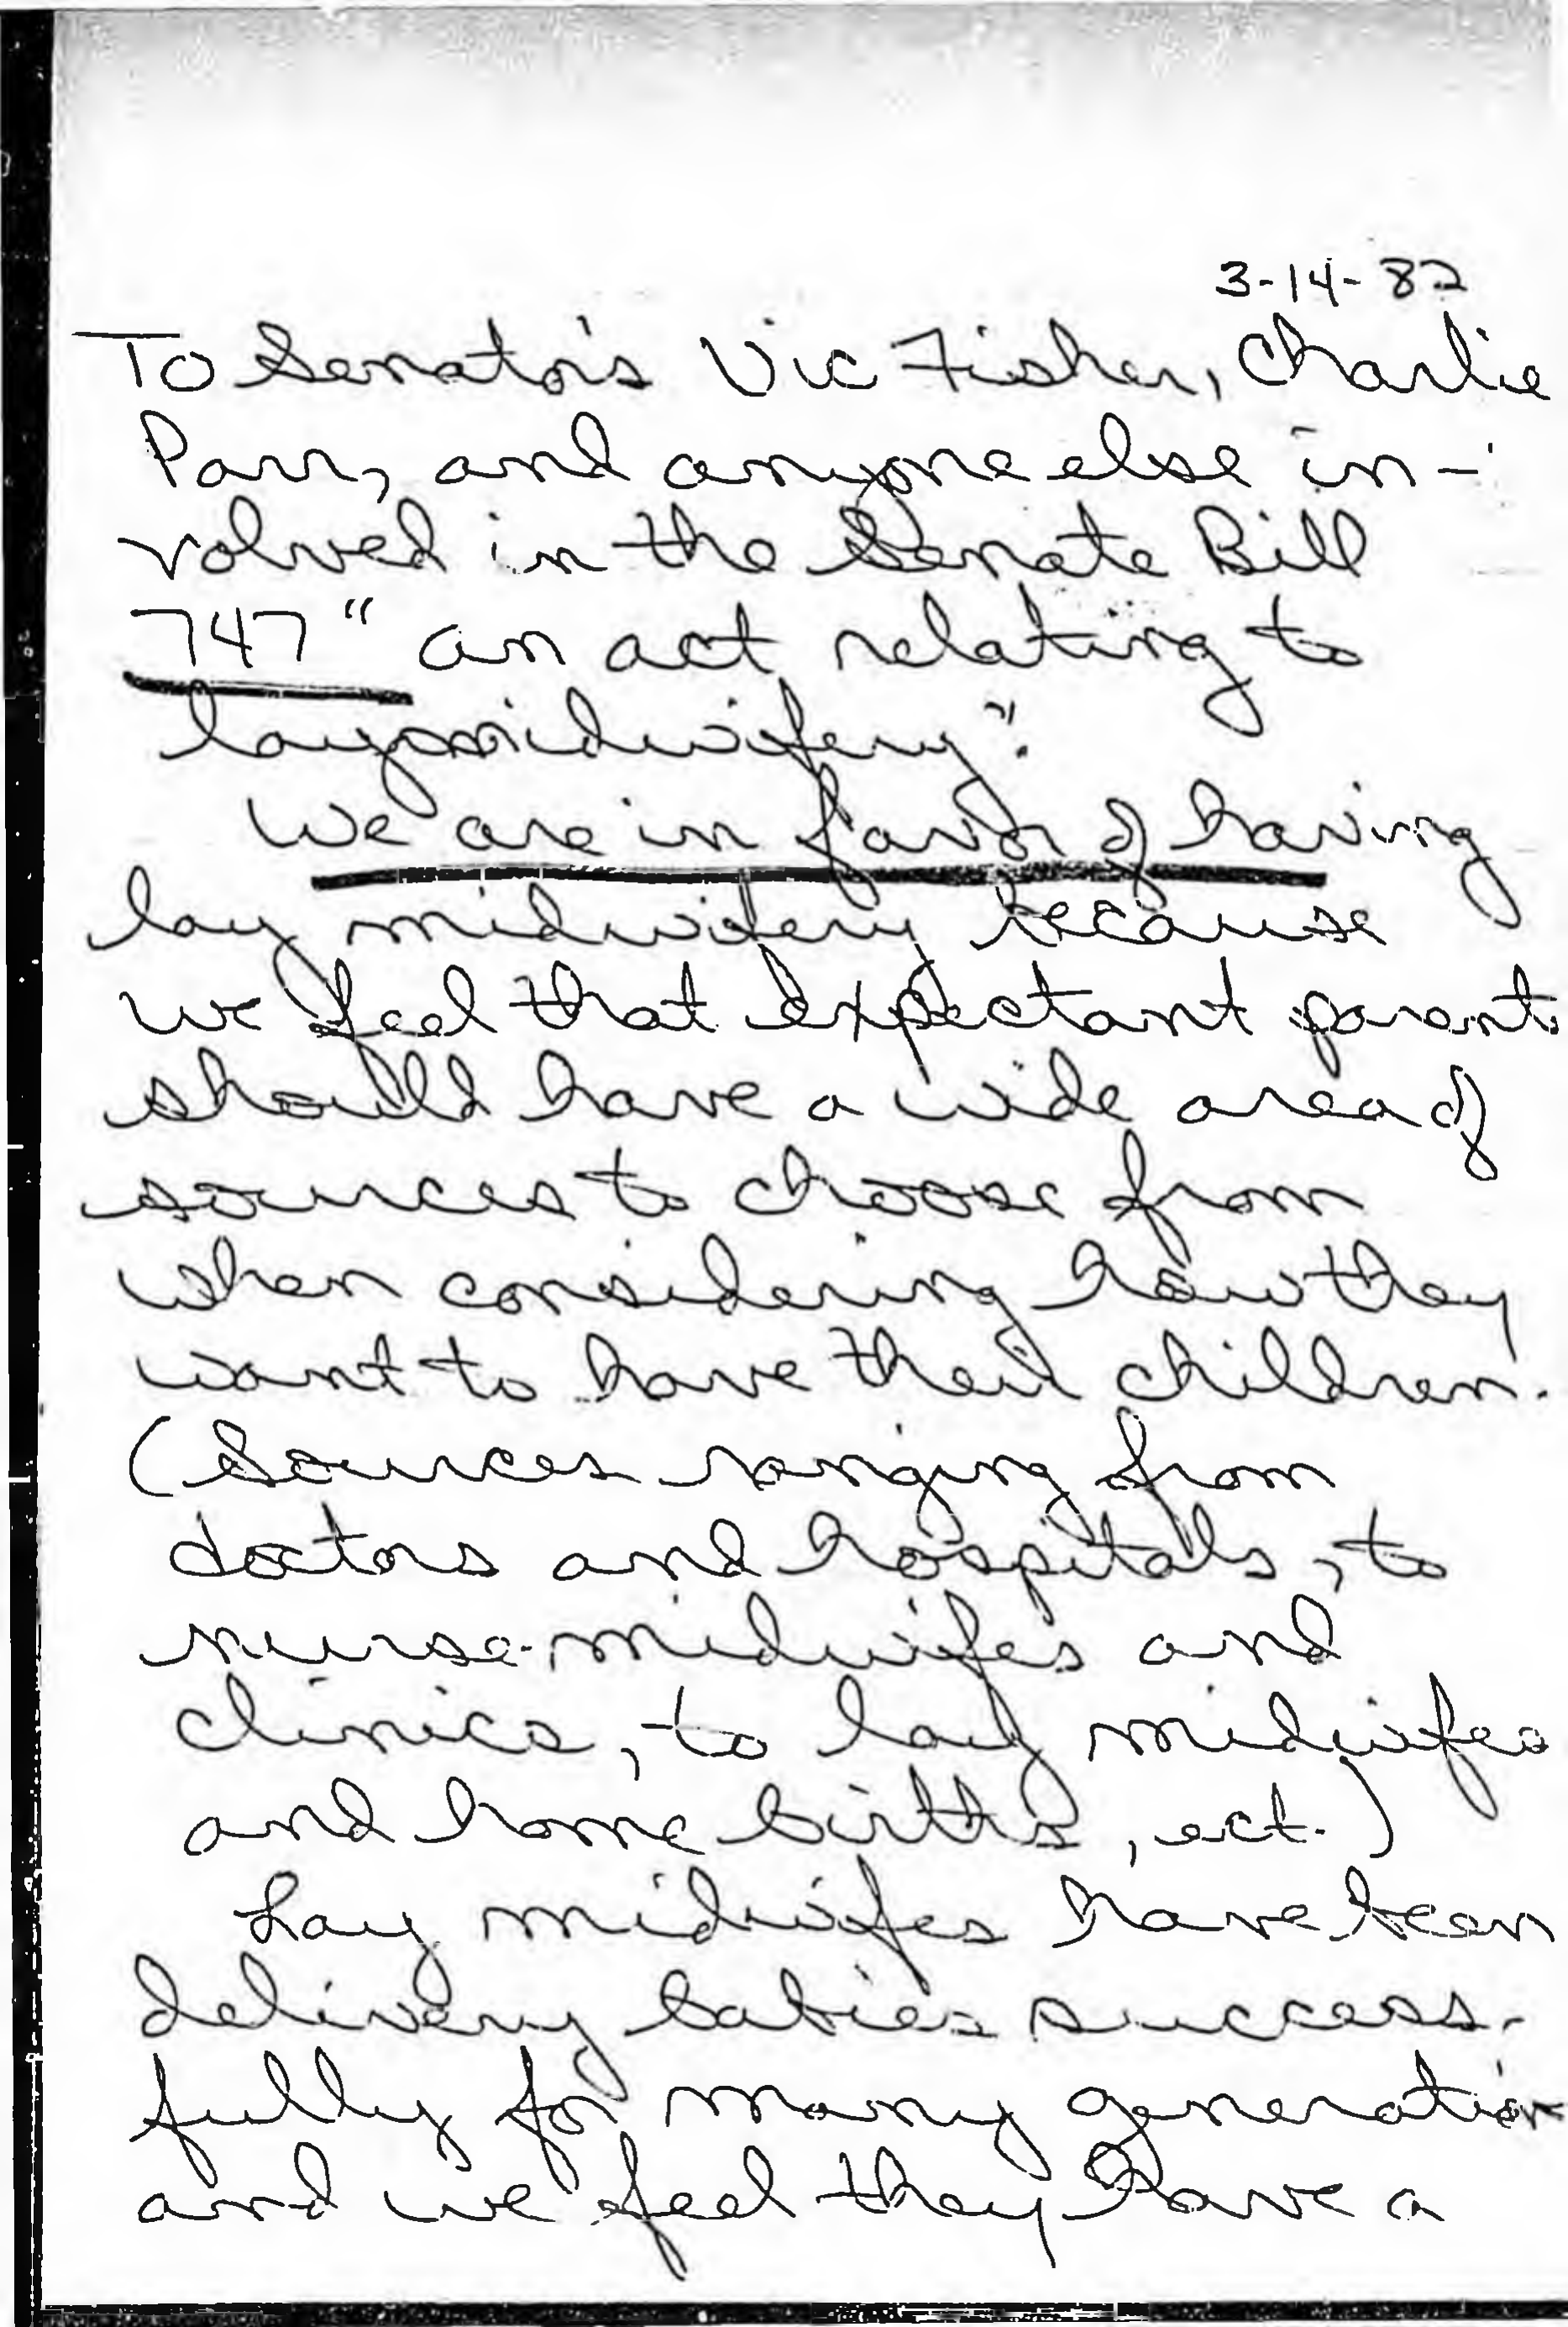 3-14-82
To Senator's Vic Fisher, Charlie
Parr, and anyone else in-
volved in the Senate Bill
747 "an act relating to
lay midwifery".
We are in favor of having
lay midwifery because
we feel that expectant parents
should have a wide area of
sources to choose from
when considering how they
want to have their children.
(Sources ranging from
doctors and hospitals, to
nurse-midwifes and
clinics, to lay midwifes
and home births, ect.)
Lay midwifes have been
delivery babies success-
fully for many generation
and we feel they have a